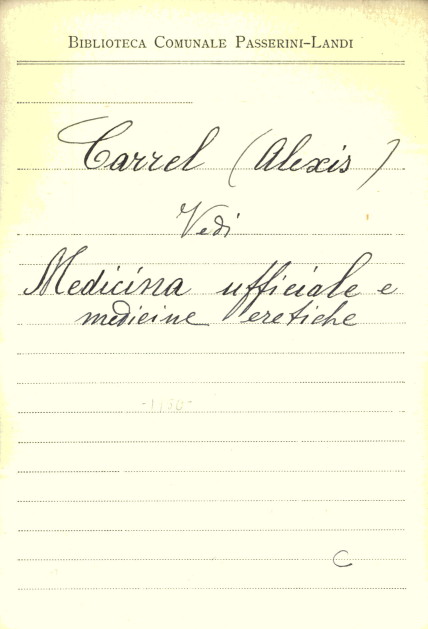 Biblioteca Comunale Passerini-Landi
Carrel (Alexis)
Vedi
Medicina ufficiale e
medicine eretiche
C